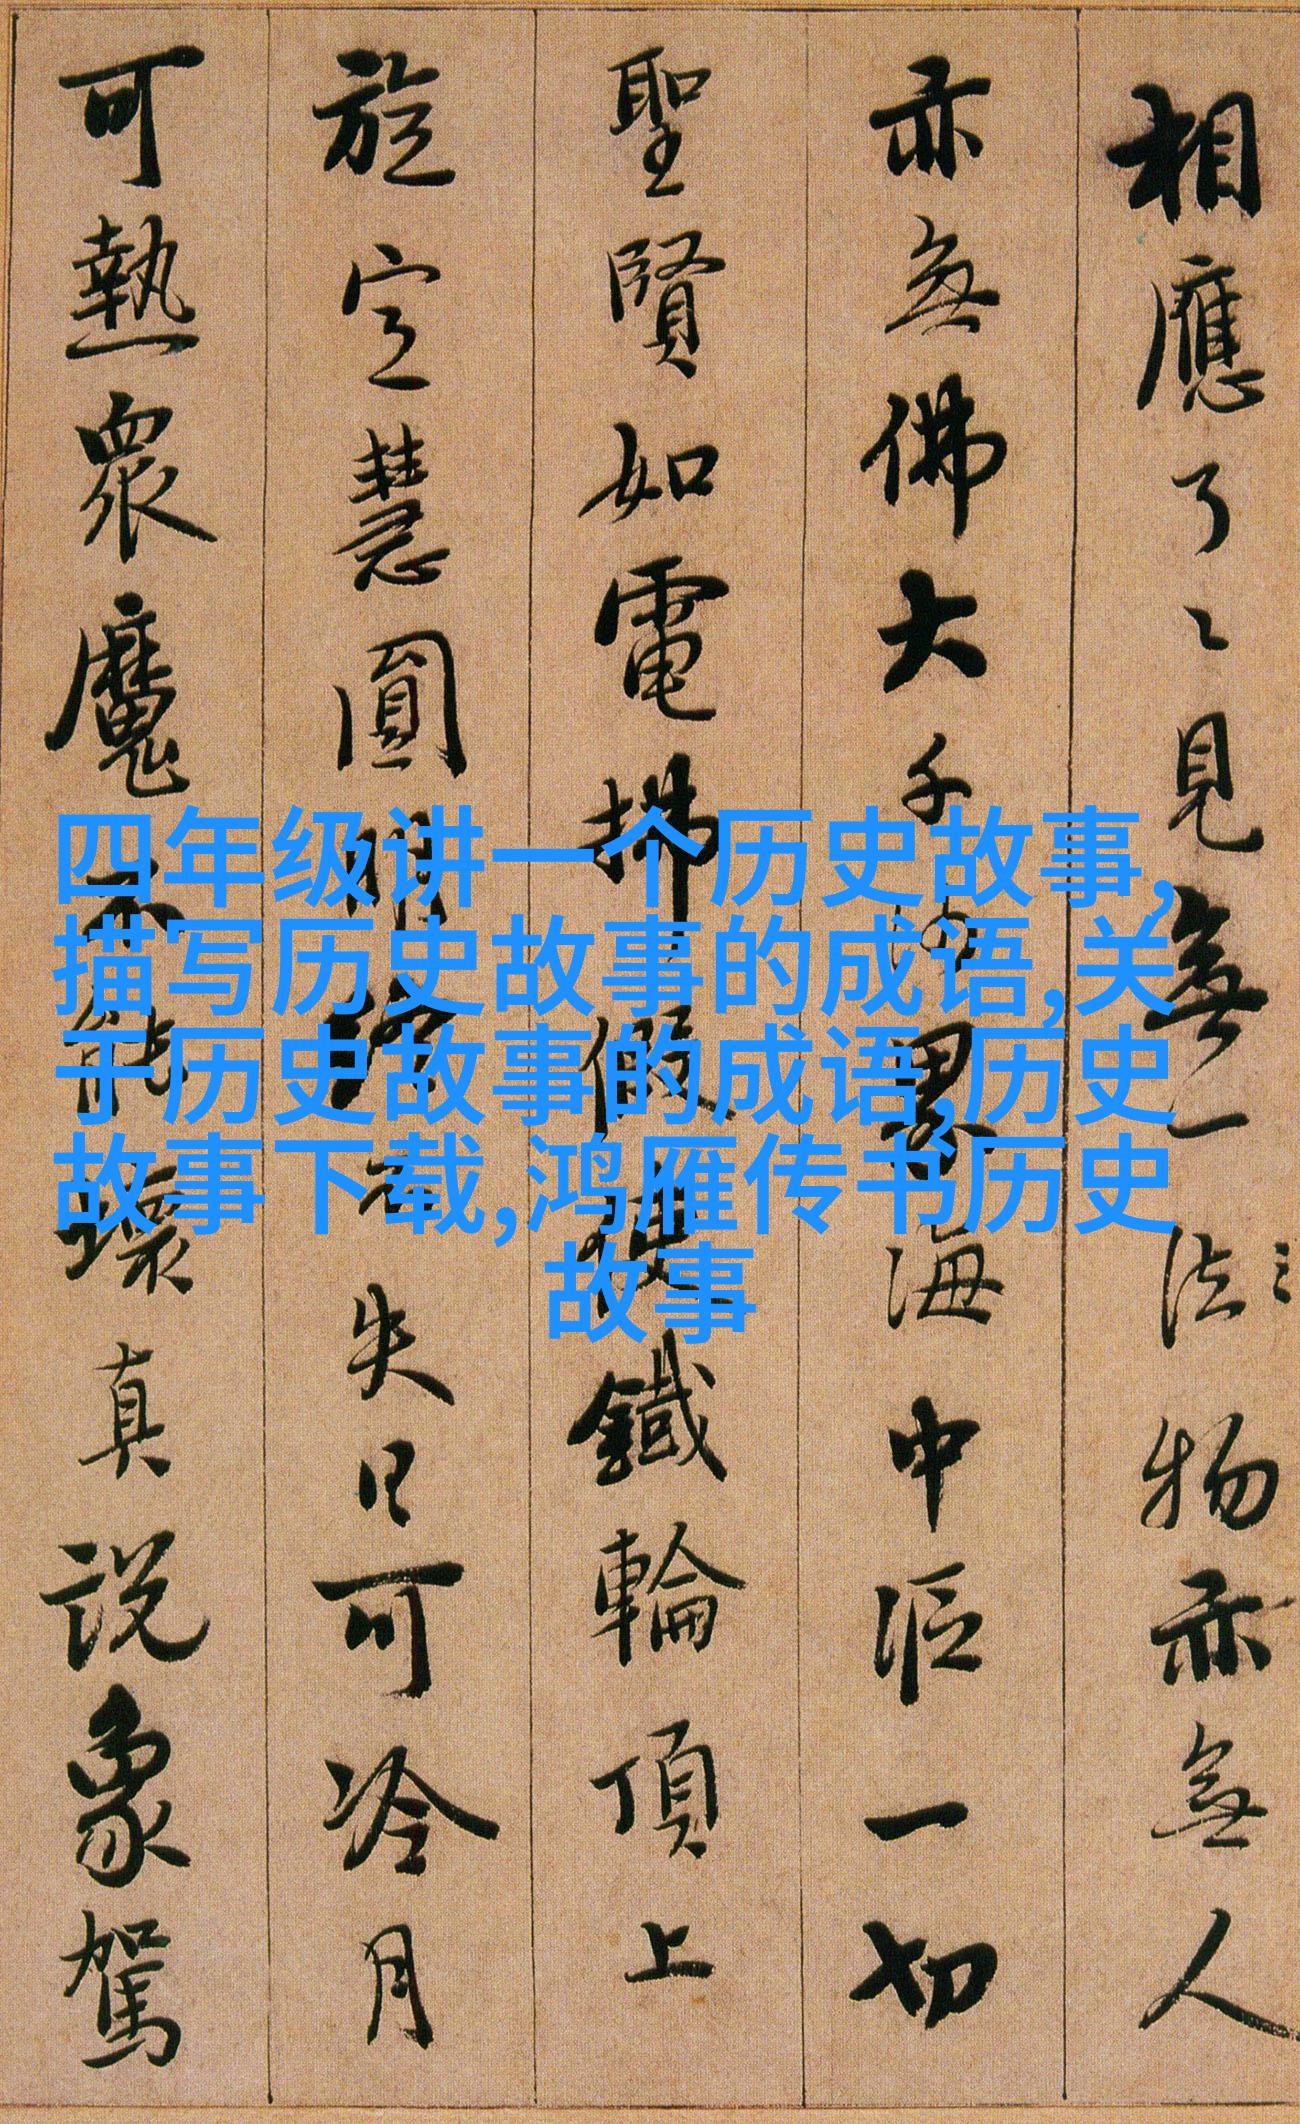 相應了〻見無一法物亦無人
亦無佛大千沙界海中漚一切
聖賢如電拂假使鐵輪頂上
旋定慧圓明終不失日可冷月
可熱衆魔不能壞真説象駕
四年级讲一个历史故事,
描写历史故事的成语,关
于历史故事的成语,历史
故事下载,鸿雁传书历史
故事